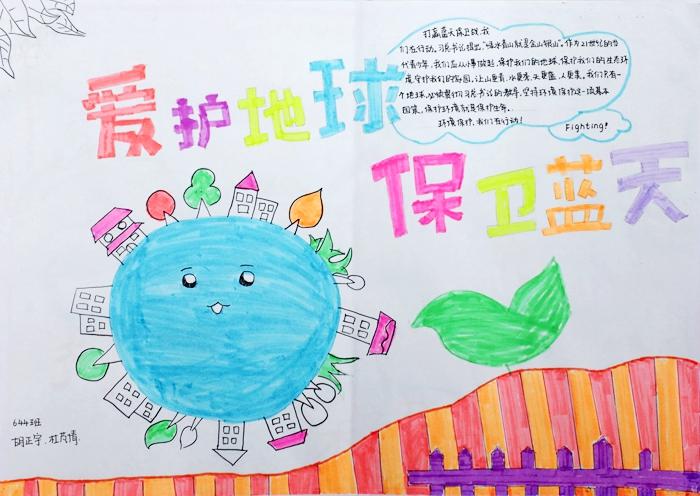 爱护地球
保卫蓝天
打赢蓝天保卫战,我
们在行动。习总书记提出"绿水青山就是金山银山"。作为21世纪的当
代青少年,我们应从小事做起,保护我们的地球,保护我们的生态环
境,守护我们的家园,让山更青,水更秀,天更蓝,人更美。我们只有一
个地球,必须要听习总书记的教导,坚持环境保护这一项基本
国策,保护环境就是保护生命。
环境保护,我们在行动!
Fighting!
644班
胡正宇、杜茂倩